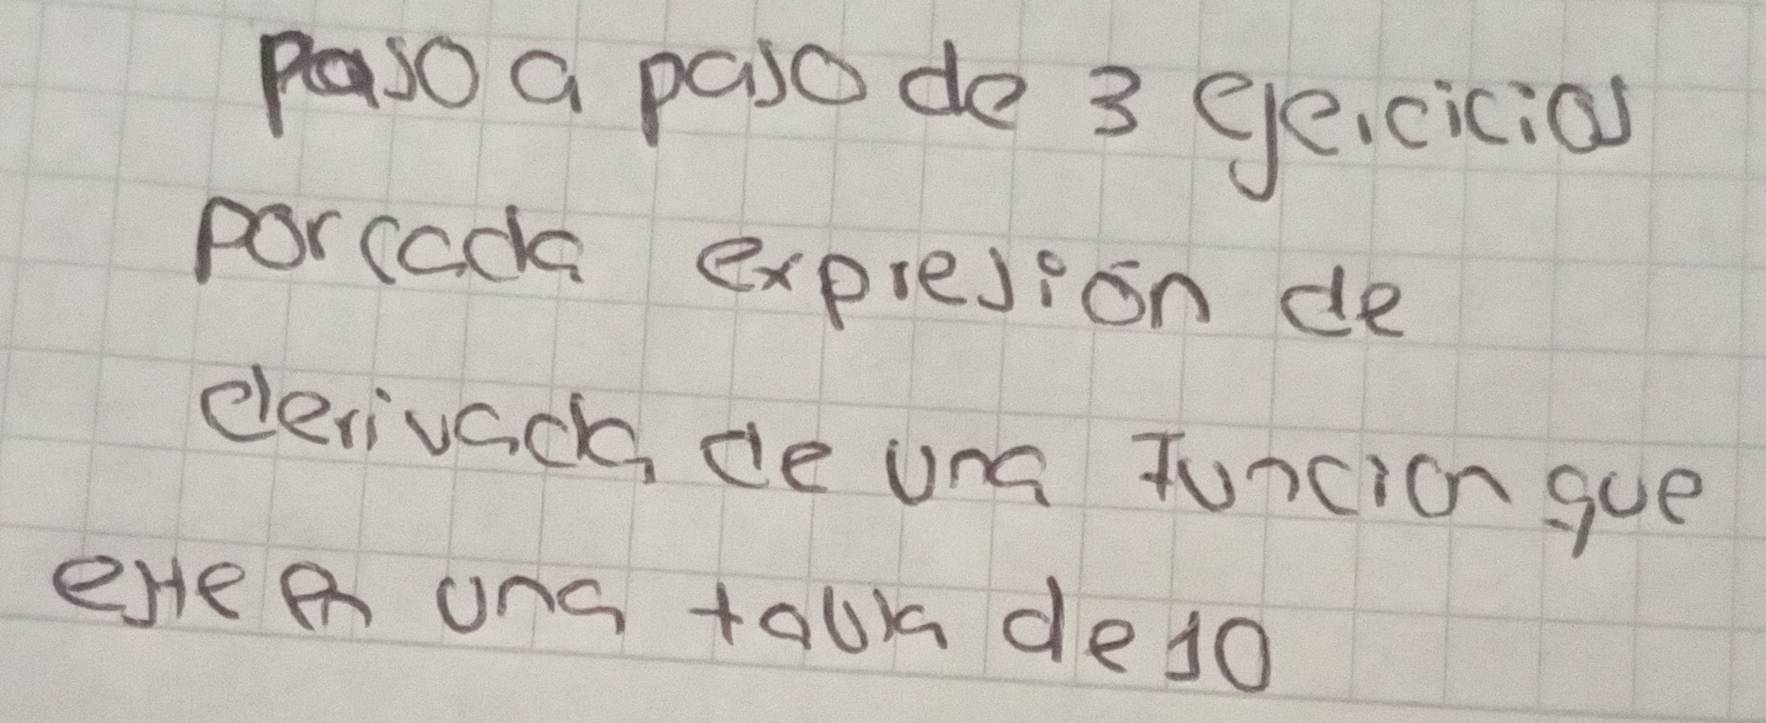 Paso a paso de 3 ejercicios
por cada expresión de
derivada de una funcion que
este en una tabla de 10